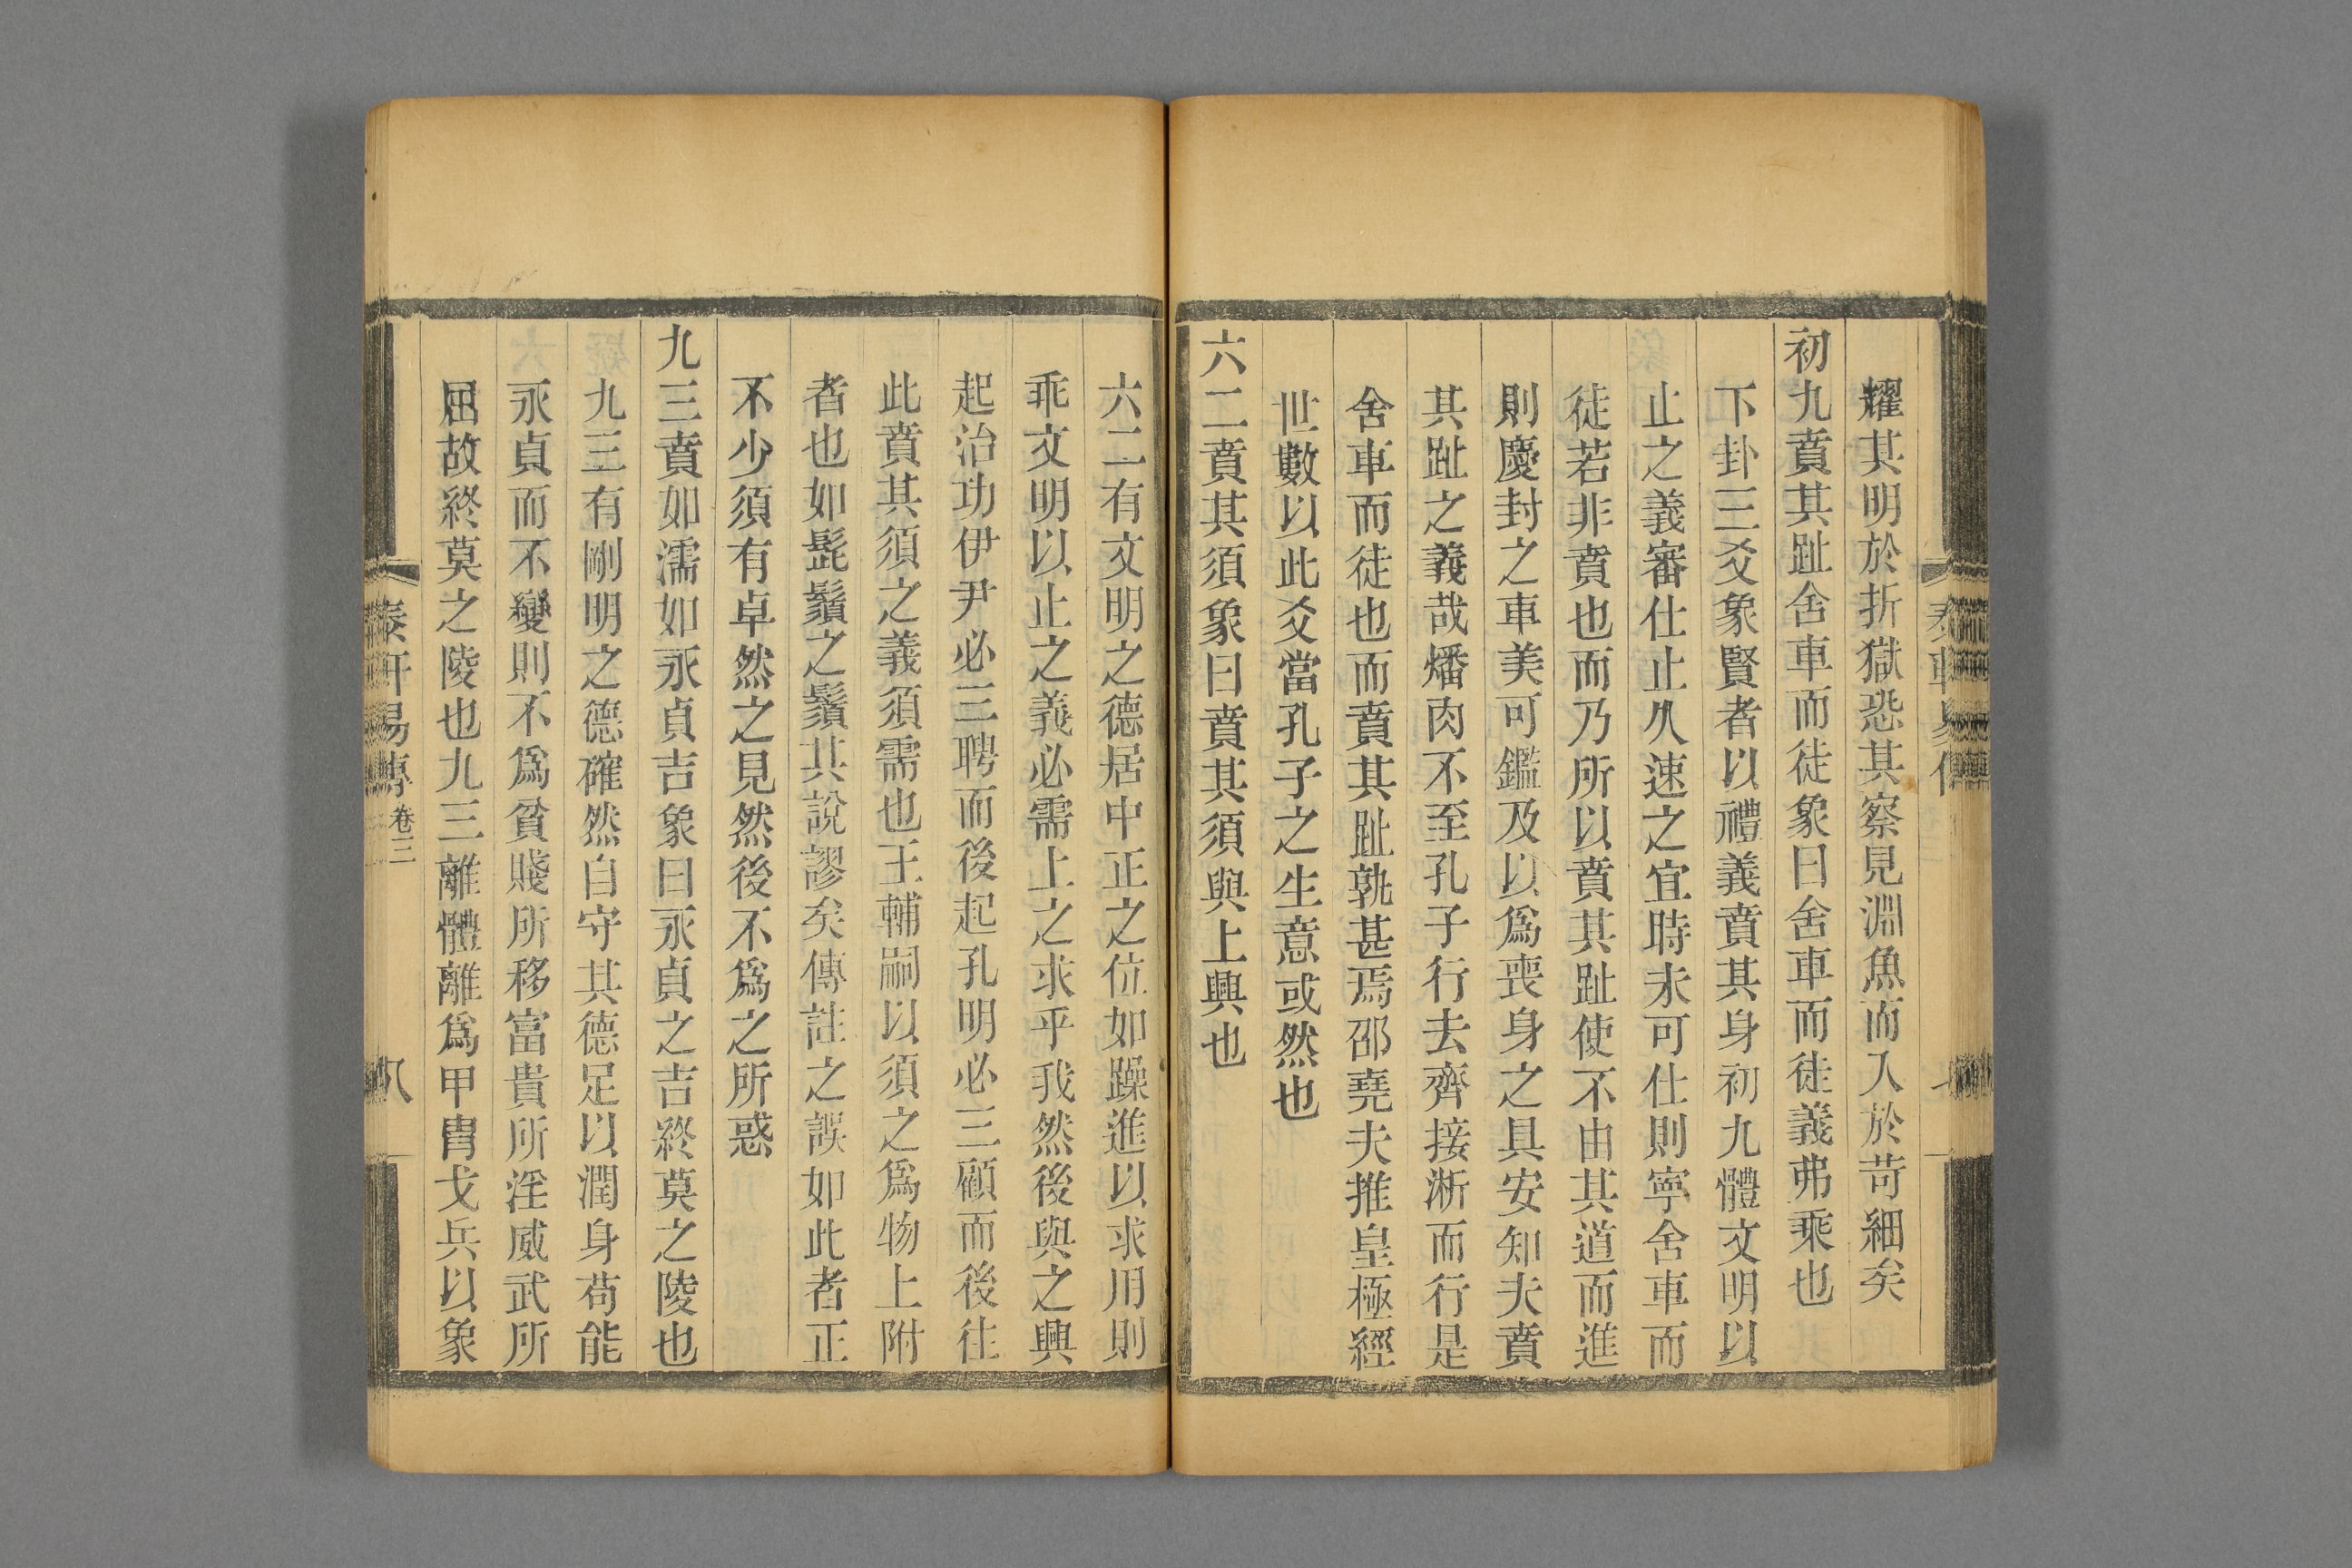 耀其明於折獄恐其察見淵魚而入於苛細矣
初九賁其趾舍車而徒象曰舍車而徒義弗乘也
下卦三爻象賢者以禮義賁其身初九體文明以
止之義審仕止久速之宜時未可仕則寧舍車而
徒若非賁也而乃所以賁其趾使不由其道而進
則慶封之車美可鑑及以爲喪身之具安知夫賁
其趾之義哉燔肉不至孔子行去齊接淅而行是
舍車而徒也而賁其趾孰甚焉邵堯夫推皇極經
世數以此爻當孔子之生意或然也
六二賁其須象曰賁其須與上興也
六二有文明之德居中正之位如躁進以求用則
乖文明以止之義必需上之求乎我然後與之興
起治功伊尹必三聘而後起孔明必三顧而後往
此賁其須之義須需也王輔嗣以須之爲物上附
者也如髭鬚之鬚其說謬矣傳註之誤如此者正
不少須有卓然之見然後不爲之所惑
九三賁如濡如永貞吉象曰永貞之吉終莫之陵也
九三有剛明之德確然自守其德足以潤身苟能
永貞而不變則不爲貧賤所移富貴所淫威武所
屈故終莫之陵也九三離體離爲甲冑戈兵以象
泰軒易傳 卷三 八